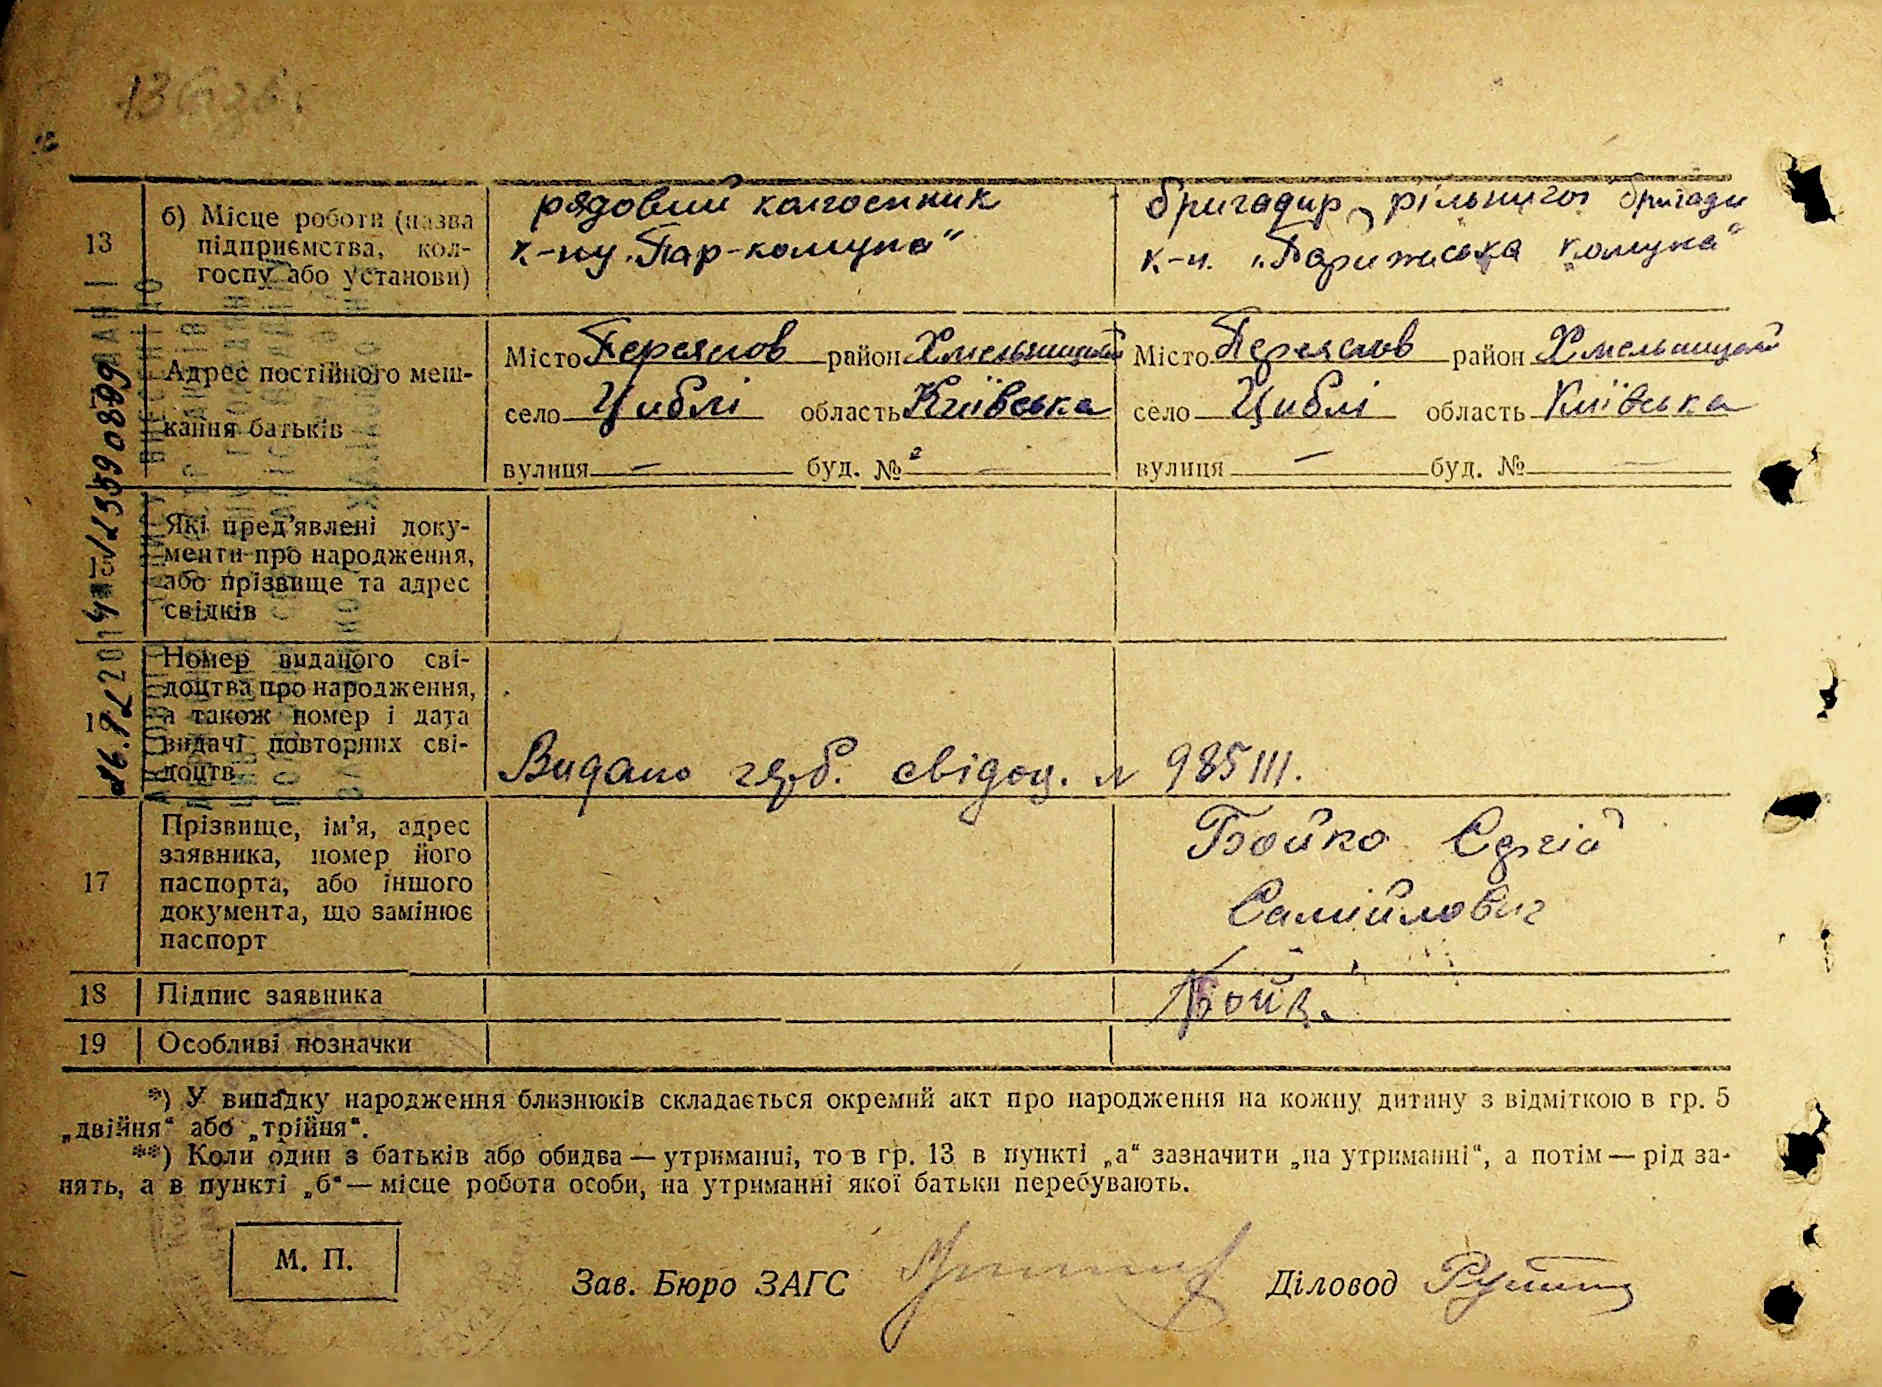 13
б) Місце роботи (назва
підприємства, кол-
госпу або установи)
рядовий колгоспник
к-пу „Пар-комуна“
бригадир рільничої бригади
к-п. „Паризька комуна“
Адрес постійного меш-
кання батьків
Місто Переяслов район Хмельницький
село Циблі область Київська
вулиця — буд. № —
Місто Переяслов район Хмельницький
село Циблі область Київська
вулиця — буд. № —
15
Які пред'явлені доку-
менти про народження,
або прізвище та адрес
свідків
16
Номер виданого сві-
доцтва про народження,
а також номер і дата
видачі повторних сві-
доцтв
Видано герб. свідоц. №
17
Прізвище, ім'я, адрес
заявника, номер його
паспорта, або іншого
документа, що замінює
паспорт
Бойко Сергій
Самійлович
18
Підпис заявника
Бойко
19
Особливі позначки
*) У випадку народження близнюків складається окремий акт про народження на кожну дитину з відміткою в гр. 5
„двійня“ або „трійня“.
**) Коли один з батьків або обидва — утриманці, то в гр. 13 в пункті „а“ зазначити „на утриманні“, а потім — рід за-
нять, а в пункті „б“ — місце робота особи, на утриманні якої батьки перебувають.
М. П.
Зав. Бюро ЗАГС
Діловод